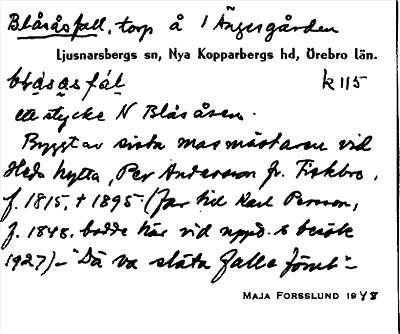 Blåsåsfall, torp å 1 Ängesgården
Ljusnarsbergs sn, Nya Kopparbergs hd, Örebro län.
blåsåsfäl k 115
ett stycke N Blåsåsen.
Byggt av sista masmästaren vid
Heds hytta, Per Andersson fr. Fiskbo,
f. 1815, † 1895 (far till Karl Persson,
f. 1848, bodde här vid uppt. s besök
1927) – "Dä va släta falle förut" –
MAJA FORSSLUND 1948